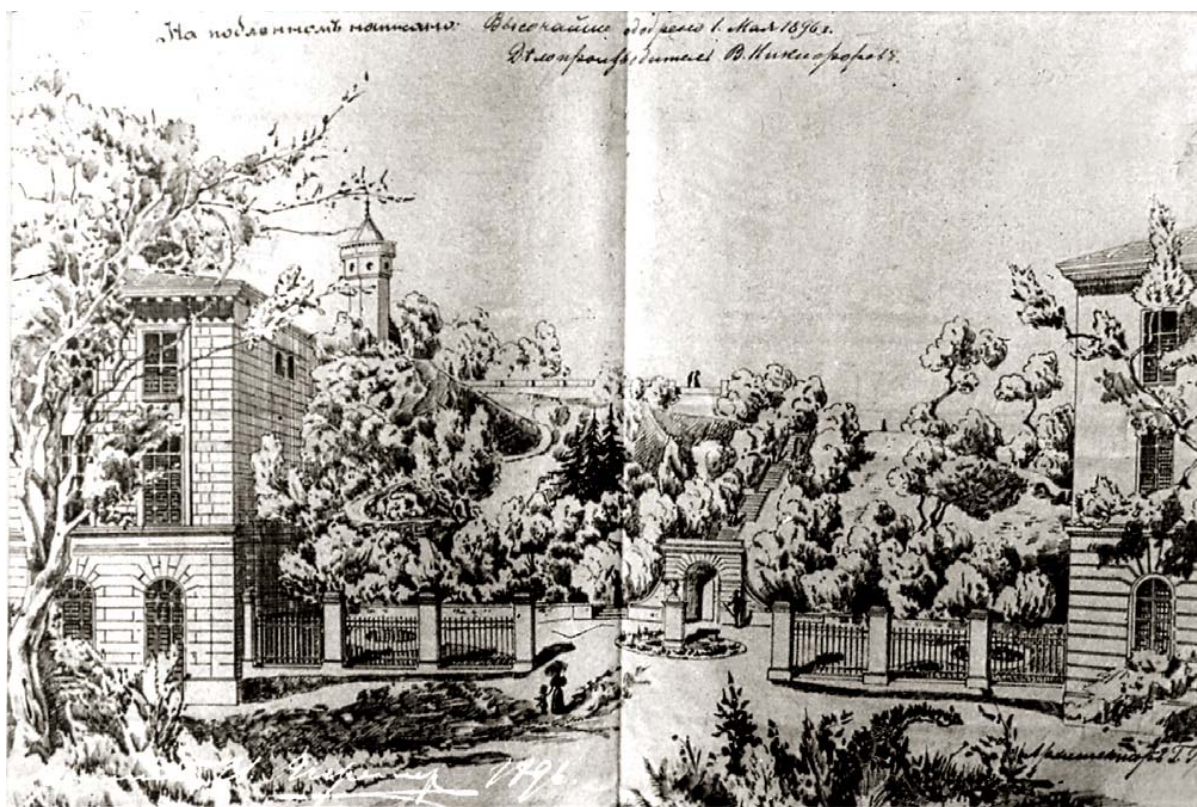 На подлинномъ написано: Высочайше одобрено 1. Мая 1896 г.
Дѣлопроизводитель В. Никифоровъ.
1896.
Архитекторъ Г.